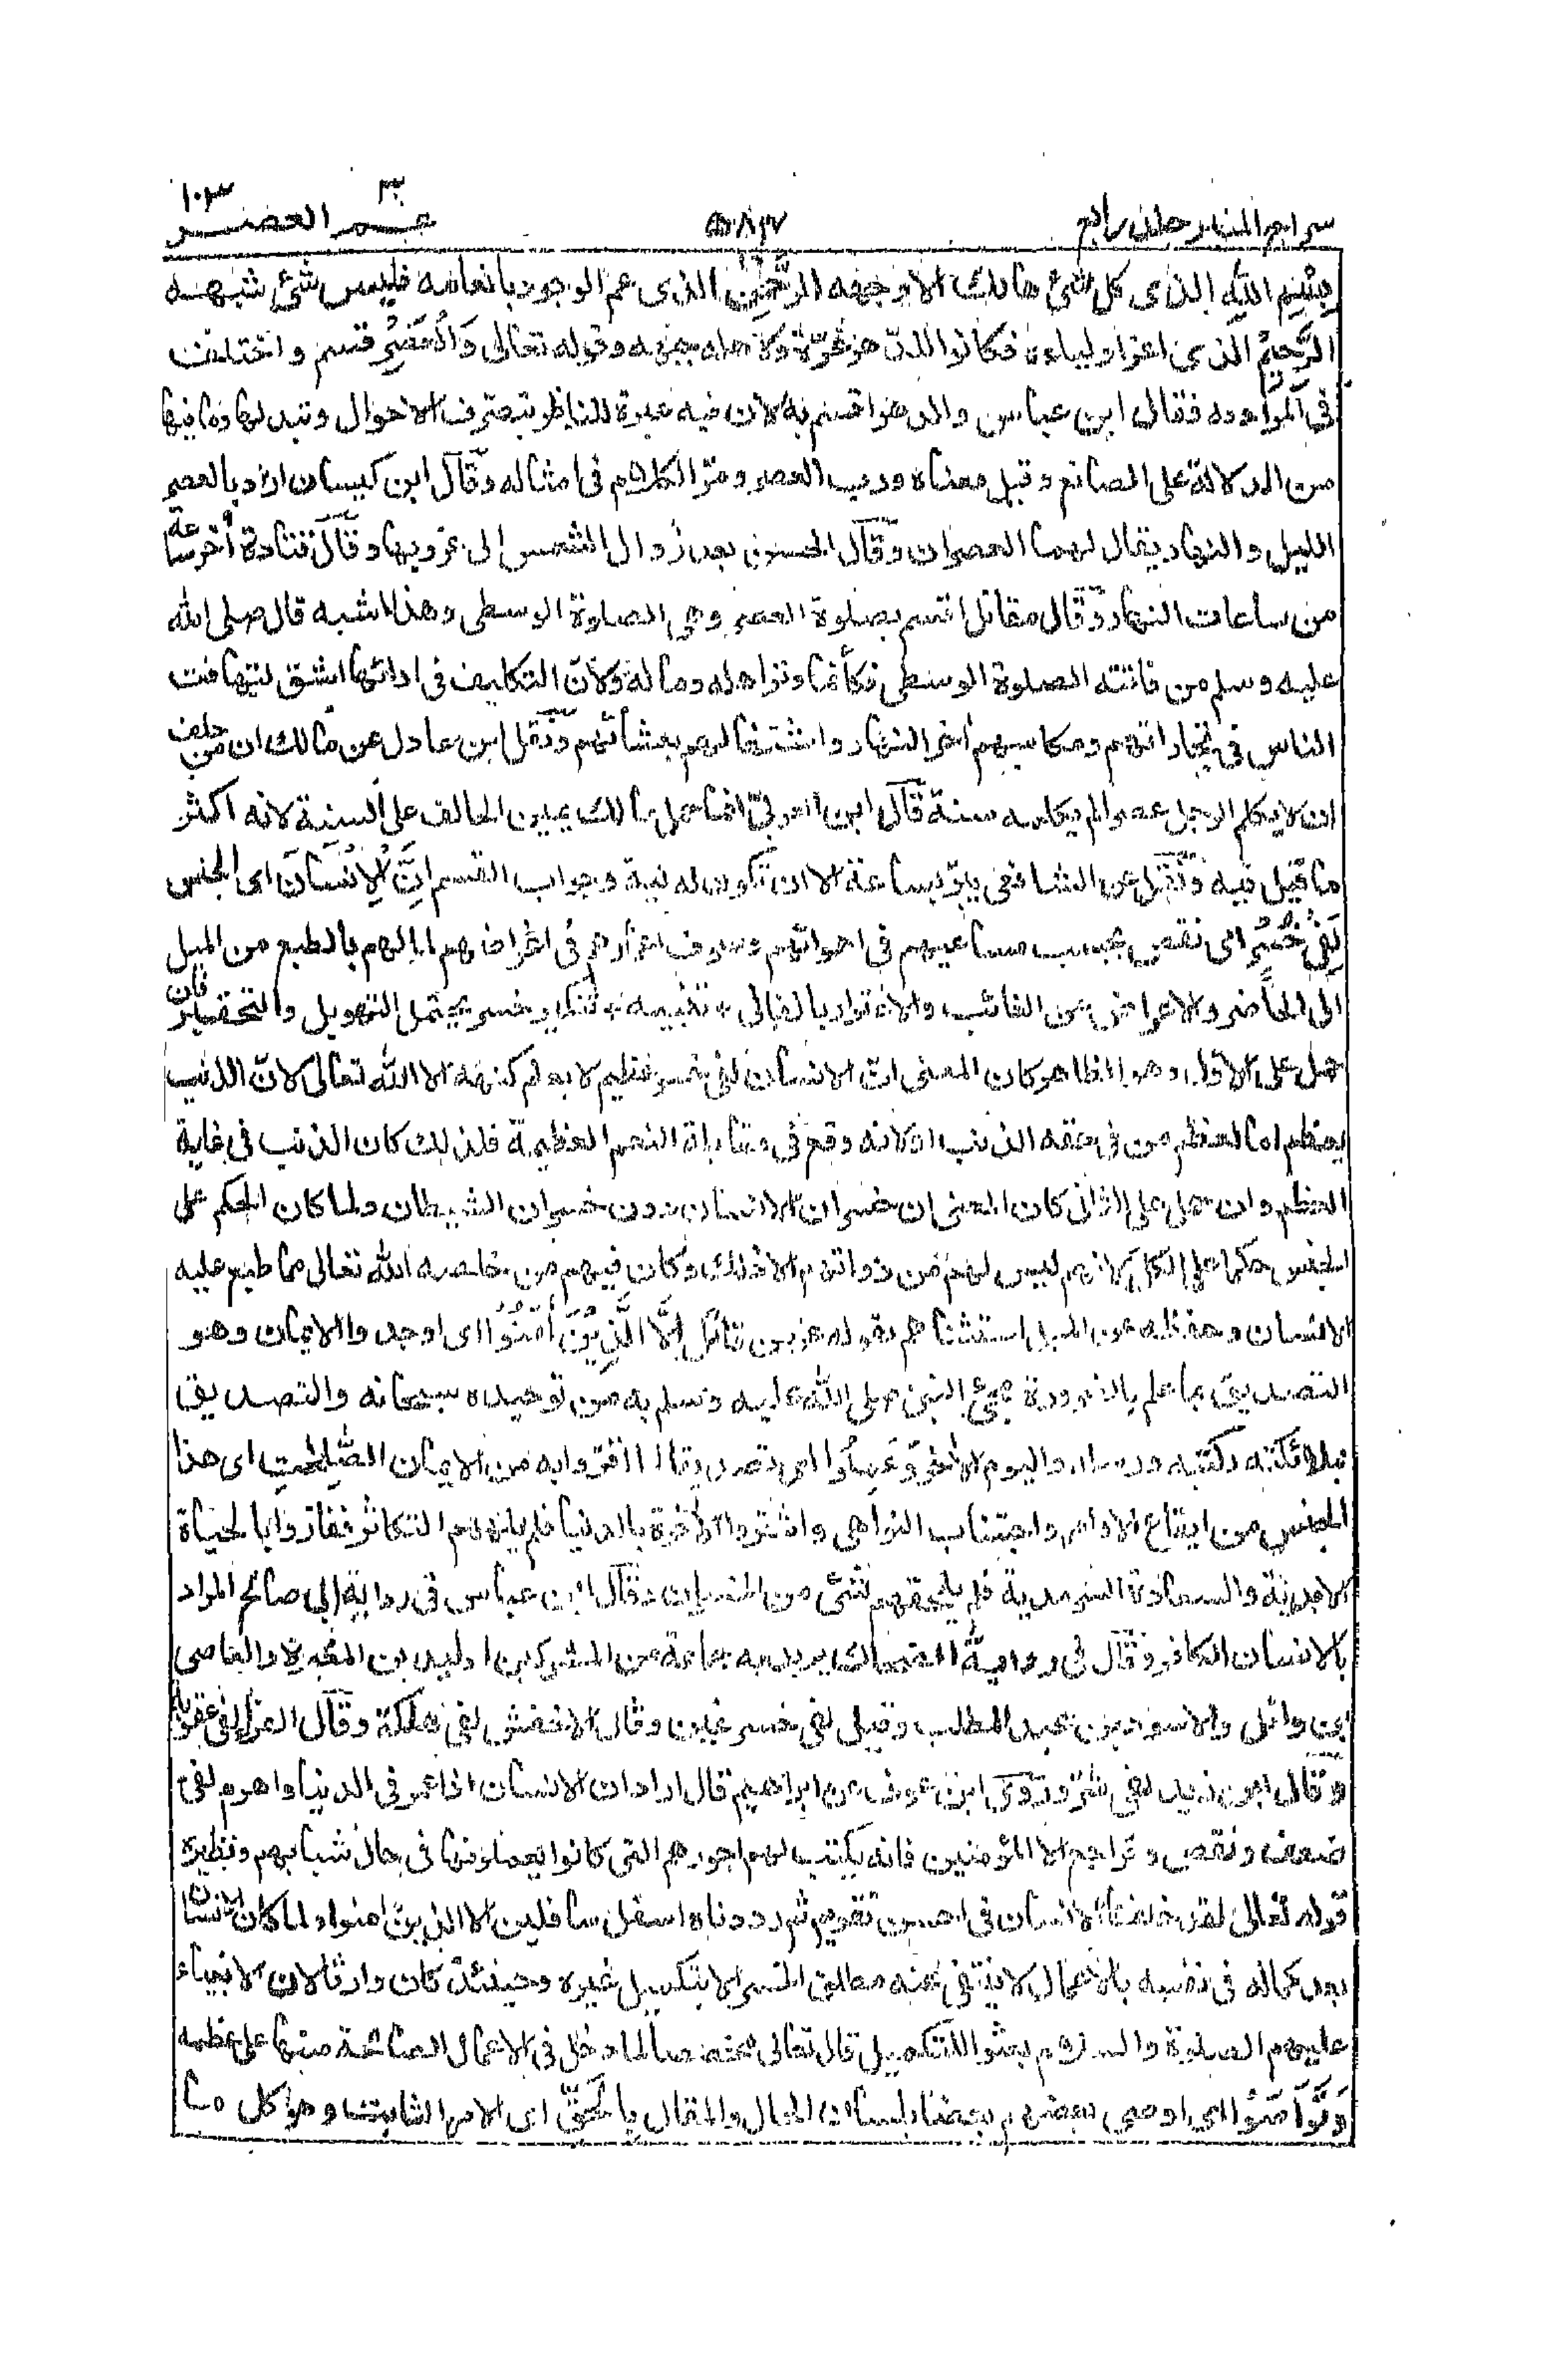 سراج المنير جلد رابع ۵۸۲ عم العصر ۱۰۳
بِسْمِ اللّٰهِ الذی کل شئ هالك الا وجهه الرَّحْمٰنِ الذی عم الوجود بانعامه فلیس شئ شبهه
الرَّحِیْمِ الذی اعز اولیاءه فکانوا للدهر غرّة ولاهله وقوله تعالی وَالْعَصْرِ قسم واختلفت
فی المراد به فقال ابن عباس والدهر اقسم به لان فیه عبرة للناظر بتصرّف الاحوال وتبدلها وما فیها
من الدلالة علی الصانع وقیل معناه ورب العصر ومرّ الکلام فی امثاله وقال ابن کیسان اراد بالعصر
اللیل والنهار یقال لهما العصران وقال الحسن بعد زوال الشمس إلی غروبها وقال قتادة أخر ساعة
من ساعات النهار وقال مقاتل اقسم بصلوة العصر وهی الصلوة الوسطی وهذا اشبه قال صلی الله
علیه وسلم من فاتته الصلوة الوسطی فکأنما وتر اهله وماله ولانّ التکلیف فی ادائها اشق لتهافت
الناس فی تجاراتهم ومکاسبهم أخر النهار واشتغالهم بمعاشهم ونقل ابن عادل عن مالك ان من حلف
ان لا یکلم الرجل عصرا لم یکلمه سنة قال ابن العربیّ انما حمل مالك یمین الحالف علی السنة لانه اکثر
ما قیل فیه ونقل عن الشافعی یبرّ بساعة الا ان تکون له نیة وجواب القسم اِنَّ الْاِنْسَانَ ای الجنس
لَفِیْ خُسْرٍ ای نقص بحسب مساعیهم فی اهوائهم وصرف اعمارهم فی اغراضهم لما لهم بالطبع من المیل
الی الحاضر والاعراض عن الغائب والاغترار بالفانی * تنبیه * تنکیر خسر یحتمل التهویل والتحقیر فان
حمل علی الاوّل وهو الظاهر کان المعنی انّ الانسان لفی خسر عظیم لا یعلم کنهه الا الله تعالی لانّ الذنب
یعظم اما لعظم من فی حقه الذنب او لانه وقع فی مقابلة النعم العظیمة فلذلك کان الذنب فی غایة
العظم وان حمل علی الثانی کان المعنی ان خسران الانسان دون خسران الشیطان ولما کان الحکم علی
الجنس حکما علی الکل لانهم لیس لهم من ذواتهم الا ذلك وکان فیهم من خلصه الله تعالی مما طبع علیه
الانسان وحفظه عن المیل استثناهم بقوله عز من قائل اِلَّا الَّذِیْنَ اٰمَنُوْا ای اوجدوا الایمان وهو
التصدیق بما علم بالضرورة مجئ النبی صلی الله علیه وسلم به من توحیده سبحانه والتصدیق
بملائکته وکتبه ورسله والیوم الأخر وَعَمِلُوا ای تصدیقا لما اقرّوا به من الایمان الصّٰلِحٰتِ ای هذا
الجنس من ایقاع الاوامر واجتناب النواهی واشتروا الأخرة بالدنیا فلم یلههم التکاثر ففازوا بالحیاة
الابدیة والسعادة السرمدیة فلم یلحقهم شئ من الخسران وقال ابن عباس فی روایة ابی صالح المراد
بالانسان الکافر وقال فی روایة الضحاك یرید به جماعة من المشرکین الولید بن المغیرة والعاصی
بن وائل والاسود بن عبد المطلب وقیل لفی خسر غبن وقال الاخفش لفی هلکة وقال الفراء لفی عقوبة
وقال ابن زید لفی شرّ وروی ابن عوف عن ابراهیم قال اراد ان الانسان اذا عمر فی الدنیا واهرم لفی
ضعف ونقص وتراجع الا المؤمنین فانه یکتب لهم اجورهم التی کانوا یعملونها فی حال شبابهم ونظیره
قوله تعالی لقد خلقنا الانسان فی احسن تقویم ثم رددناه اسفل سافلین الا الذین امنوا ولما کان الانسان
بعد کماله فی نفسه بالاعمال لا ینتفی عنه مطلق الخسر الا بتکمیل غیره وحینئذ کان وارثا لان الانبیاء
علیهم الصلوة والسلام بعثوا للتکمیل قال تعالی مخصصا لما دخل فی الاعمال الصالحة منبها علی عظمه
وَتَوَاصَوْا ای اوصی بعضهم بعضا بلسان الحال والمقال بِالْحَقِّ ای الامر الثابت وهو کل ما